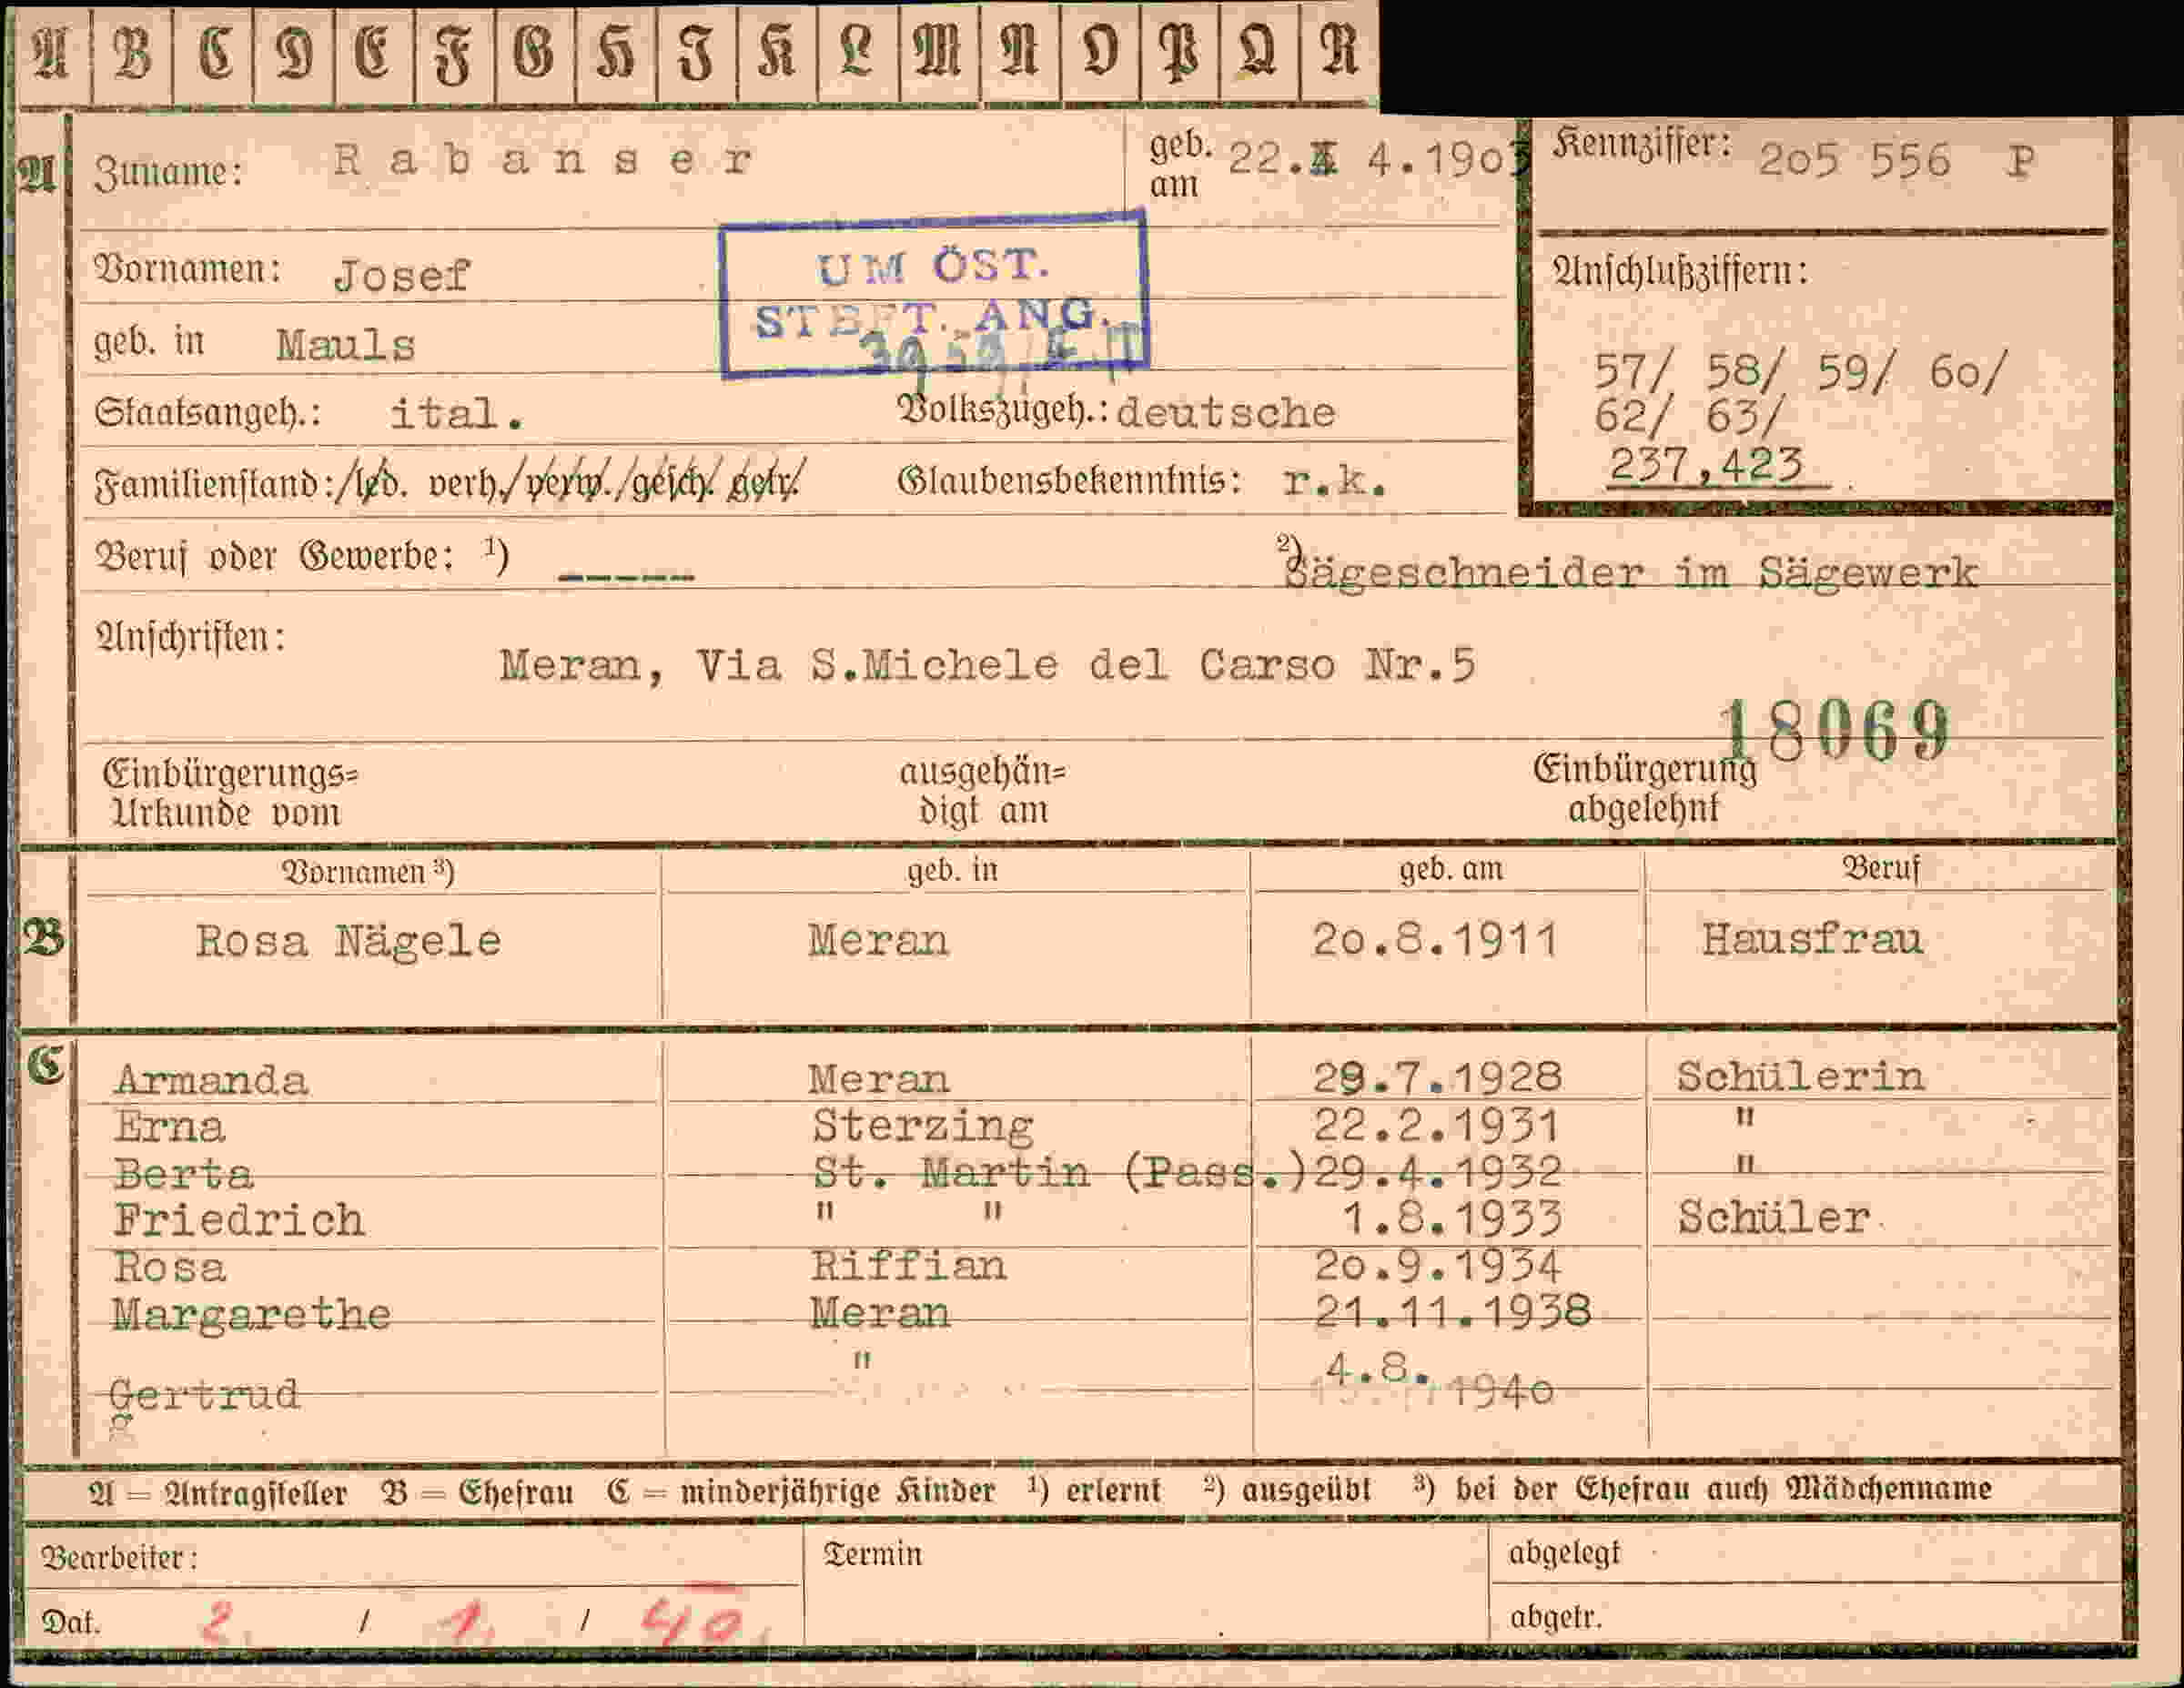 A B C D E F G H I K L M N O P Q R
A Zuname: Rabanser geb. am 22. 4.1903 Kennziffer: 205 556 P
Vornamen: Josef
UM ÖST.
ST. ANG.
Anschlußziffern:
geb. in Mauls
57/ 58/ 59/ 60/
Staatsangeh.: ital. Volkszugeh.: deutsche
62/ 63/
237,423
Familienstand:/led. verh./verw./gesch. getr. Glaubensbekenntnis: r.k.
Beruf oder Gewerbe: ¹) ----- ²) Sägeschneider im Sägewerk
Anschriften: Meran, Via S.Michele del Carso Nr.5
18069
Einbürgerungs= ausgehän= Einbürgerung
Urkunde vom digt am abgelehnt
Vornamen ³) geb. in geb. am Beruf
B Rosa Nägele Meran 20.8.1911 Hausfrau
C Armanda Meran 29.7.1928 Schülerin
Erna Sterzing 22.2.1931 "
Berta St. Martin (Pass.) 29.4.1932 "
Friedrich " " 1.8.1933 Schüler
Rosa Riffian 20.9.1934
Margarethe Meran 21.11.1938
Gertrud " 4.8. 1940
A = Antragsteller B = Ehefrau C = minderjährige Kinder ¹) erlernt ²) ausgeübt ³) bei der Ehefrau auch Mädchenname
Bearbeiter: Termin abgelegt
Dat. 2. / 1. / 40. abgetr.